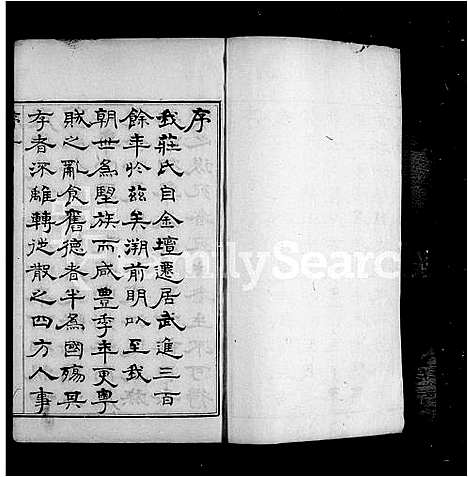 序
我莊氏自金壇遷居武進三百
餘年於茲矣溯前明以至我
朝世為望族而咸豐季年更粵
賊之亂食舊德者半為國殤其
存者流離轉徙散之四方人事
FamilySearch